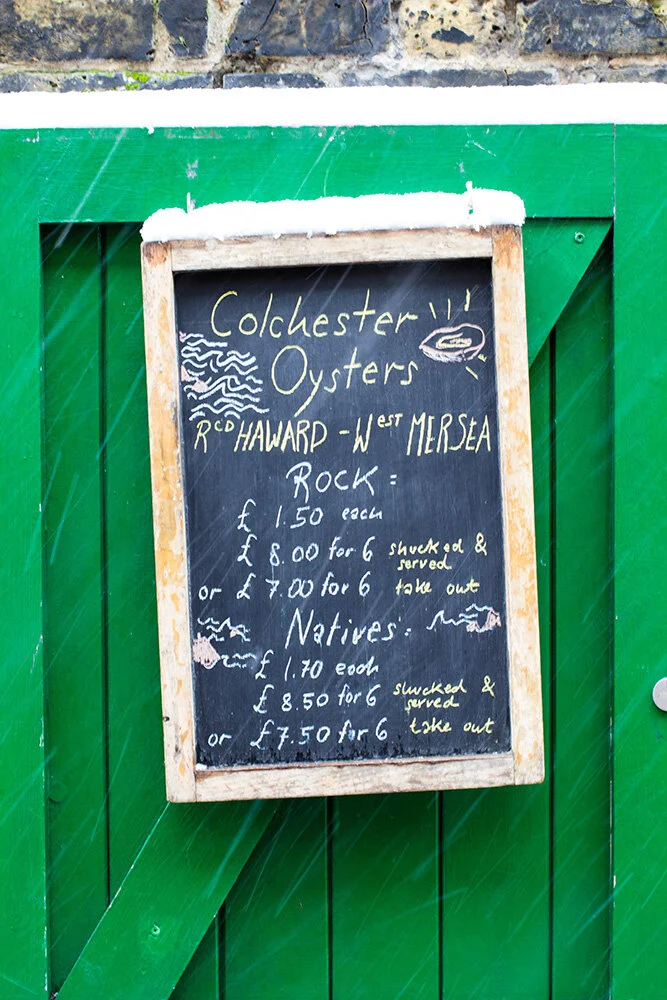 Colchester
Oysters
Rcd HAWARD - West MERSEA
ROCK:
£ 1.50 each
£ 8.00 for 6 shucked & served
or £ 7.00 for 6 take out
Natives:
£ 1.70 each
£ 8.50 for 6 shucked & served
or £7.50 for 6 take out